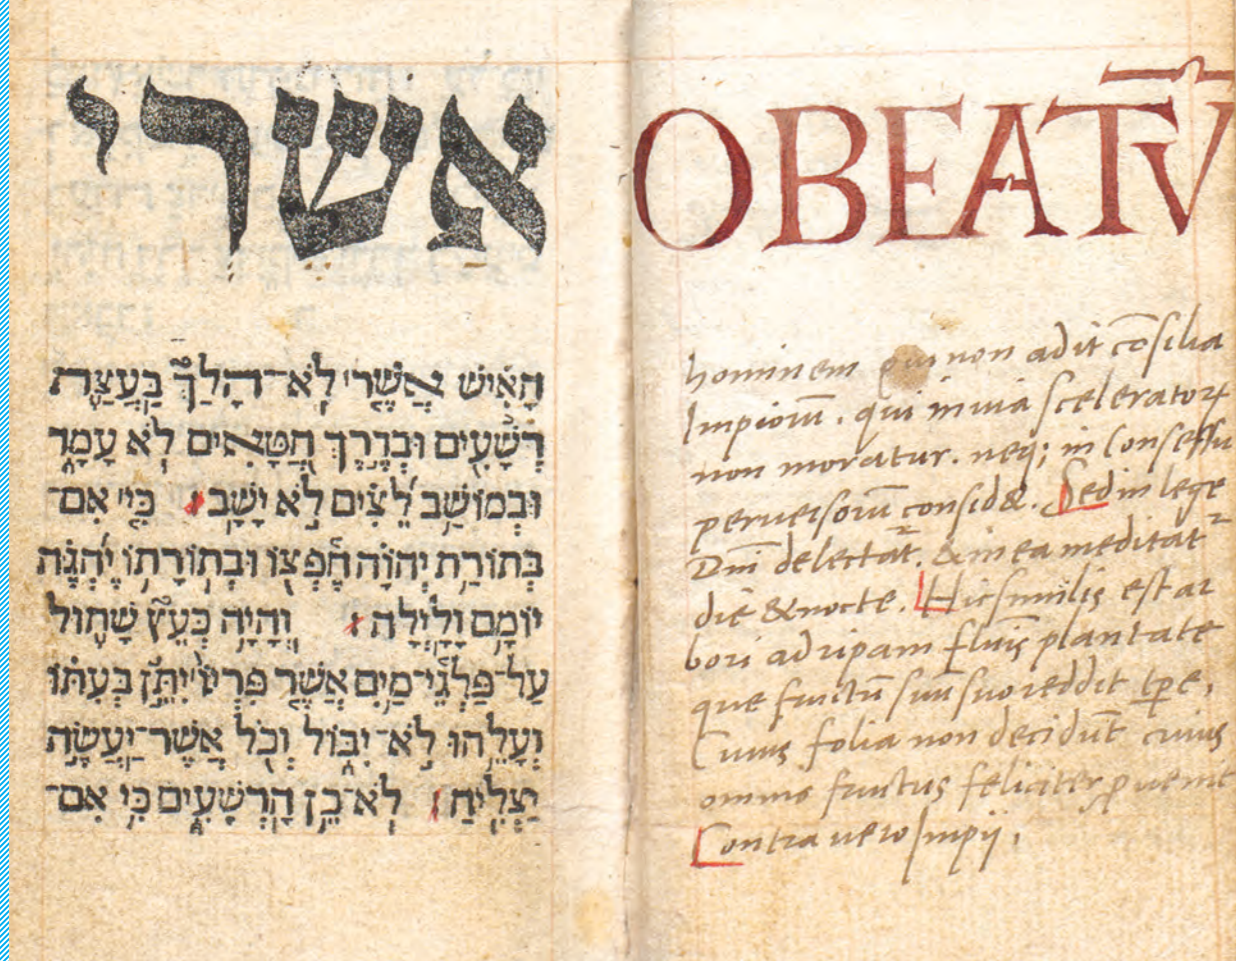 אַשְׁרֵי
הָאִישׁ אֲשֶׁר לֹא־הָלַךְ בַּעֲצַת
רְשָׁעִים וּבְדֶרֶךְ חַטָּאִים לֹא עָמָד
וּבְמוֹשַׁב לֵצִים לֹא יָשָׁב׃ כִּי אִם־
בְּתוֹרַת יְהוָֹה חֶפְצוֹ וּבְתוֹרָתוֹ יֶהְגֶּה
יוֹמָם וָלָיְלָה׃ וְהָיָה כְּעֵץ שָׁתוּל
עַל־פַּלְגֵי־מַיִם אֲשֶׁר פִּרְיוֹ יִתֵּן בְּעִתּוֹ
וְעָלֵהוּ לֹא־יִבּוֹל וְכֹל אֲשֶׁר־יַעֲשֶׂה
יַצְלִיחַ׃ לֹא־כֵן הָרְשָׁעִים כִּי אִם־
O BEATV̄
hominem qui non adit cōsilia
Impiorū. qui in uia sceleratoꝝ
non moratur. neq; in Consessu
peruersorū consid&. Sed in lege
Dn̄i delectat᷑. & in ea meditat᷑
die & nocte. Hic similis est ar
bori ad ripam fluīs plantate
que fructū suū suo reddit tp̄e,
Cuius folia non decidūt cuius
omnis fructus feliciter ꝓuenit
Contra uero Impij,